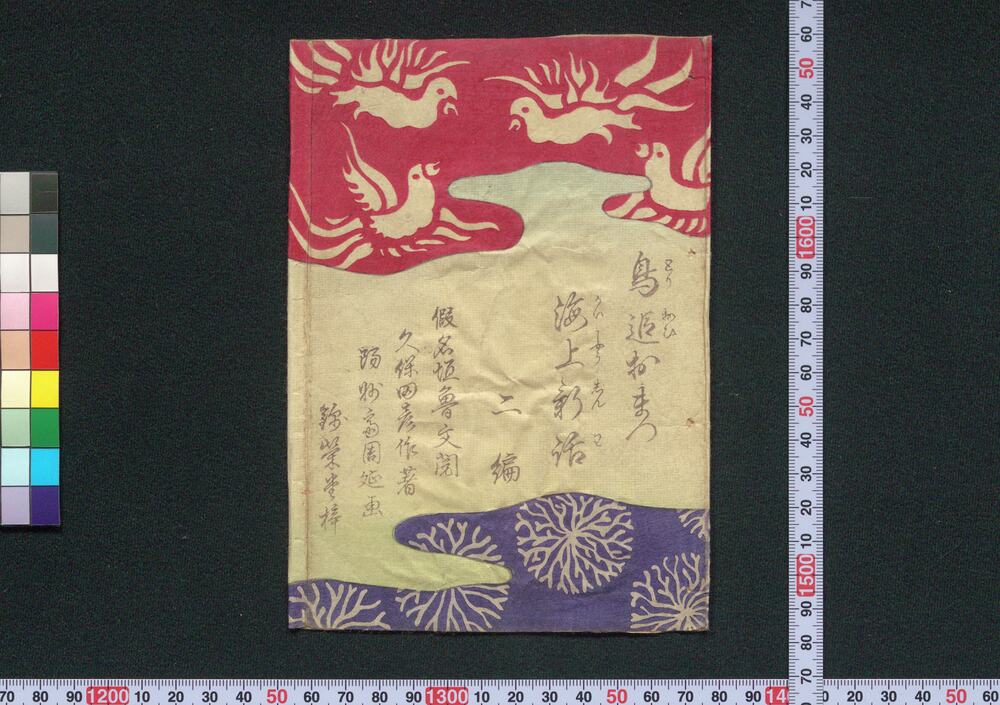 鳥追お松
とりおひ
海上新話
かいじやうしんわ
二編
假名垣魯文閲
久保田彦作著
陽州齋周延画
錦榮堂梓
70 80 90 1200 10 20 30 40 50 60 70 80 90 1300 10 20 30 40 50 60 70 80 90 14 20 30 40 50 60
7 60 50 40 30 20 10 1600 90 80 70 60 50 40 30 20 10 1500 90 80 70